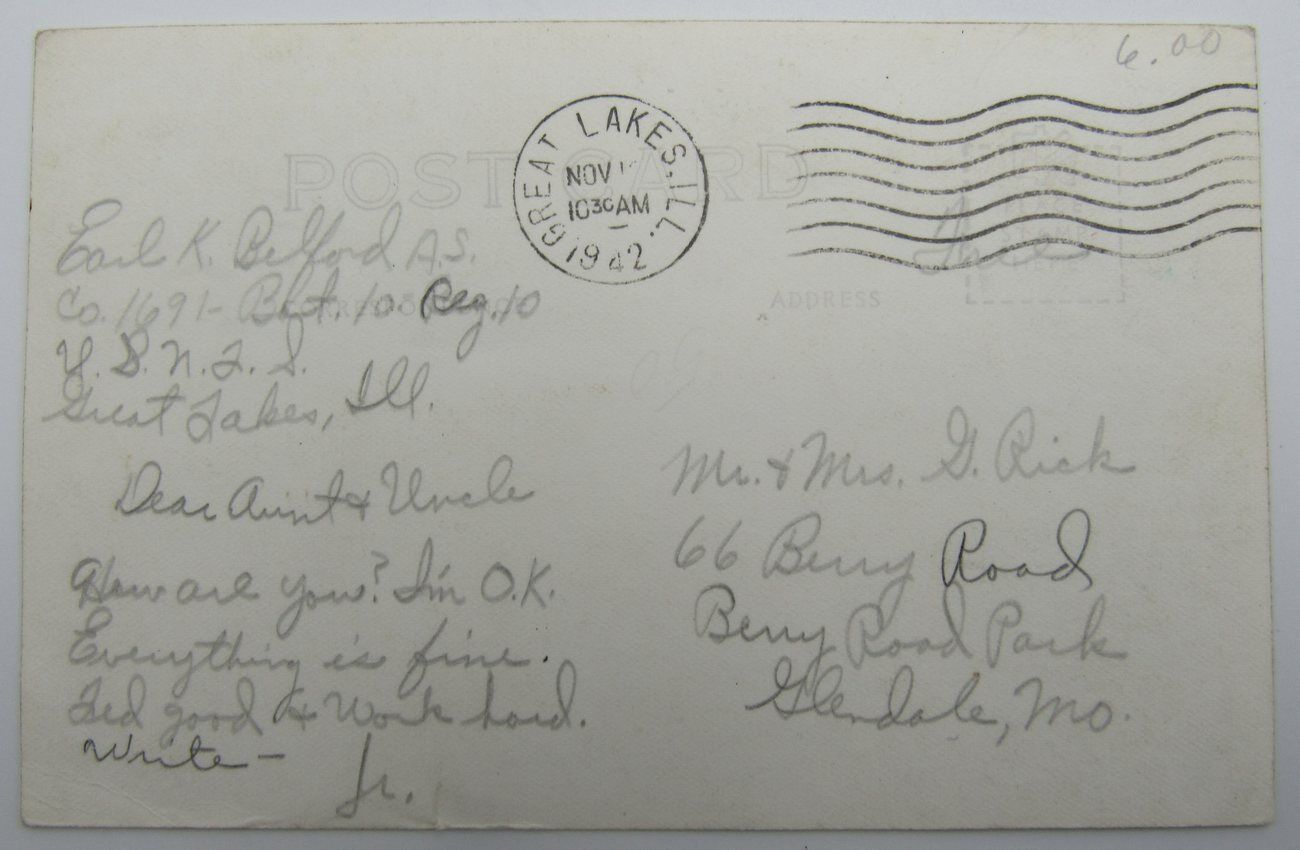 6.00
POST CARD
GREAT LAKES, ILL.
NOV 1
10 30 AM
1942
Free
Earl K. Belford A.S.
Co. 1691 - Bat. 10 Reg. 10
U. S. N. T. S.
Great Lakes, Ill.
ADDRESS
Dear Aunt & Uncle
How are you? I'm O.K.
Everything is fine.
Fed good & Work hard.
Write -
Jr.
Mr. & Mrs. G. Rick
66 Berry Road
Berry Road Park
Glendale, Mo.